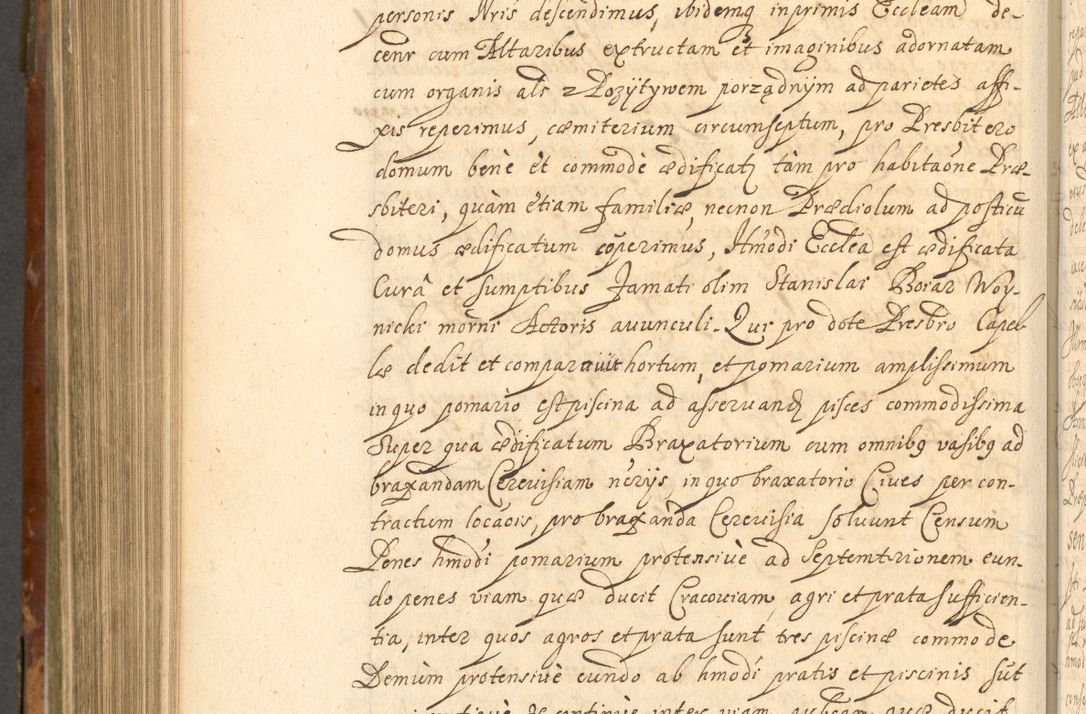 personis Nris descendimus, ibidemq inprimis Eccleam de-
cenr cum Altaribus extructam et imaginibus adornatam
cum organis als z Pozÿtywem porządnÿm ad parietes affi-
xis reperimus, cæmiterium circumseptum, pro Presbitero
domum benè èt commodè ædificatą tàm pro habitaone Præ-
sbiteri, quàm ètiam familiæ, necnon Prædiolum ad posticū
domus ædificatum coperimus, Hmodi Ecclea est ædificata
Curâ et sumptibus Famati olim Stanislai Boiaz Woy-
nicki morni Actoris avunculi. Qui pro dote Presbro Capel-
læ dedit et comparauit hortum, et pomarium amplissimum
in quo pomario est piscina ad asseruandą pisces commodissima
Super qua ædificatum Braxatorium cum omnibq vasibq ad
braxandam Cereuisiam nerijs, in quo braxatorio Ciues per con-
tractum locaois, pro braxanda Cereuisia soluunt Censum
Penes hmodi pomarium protensiuè ad Septemtrionem eun-
do penes viam quæ ducit Cracouiam, agri et prata sufficien-
tia, inter quos agros et prata sunt tres piscinæ commode
Demùm protensiuè eundo ab hmodi pratis et piscinis sūt